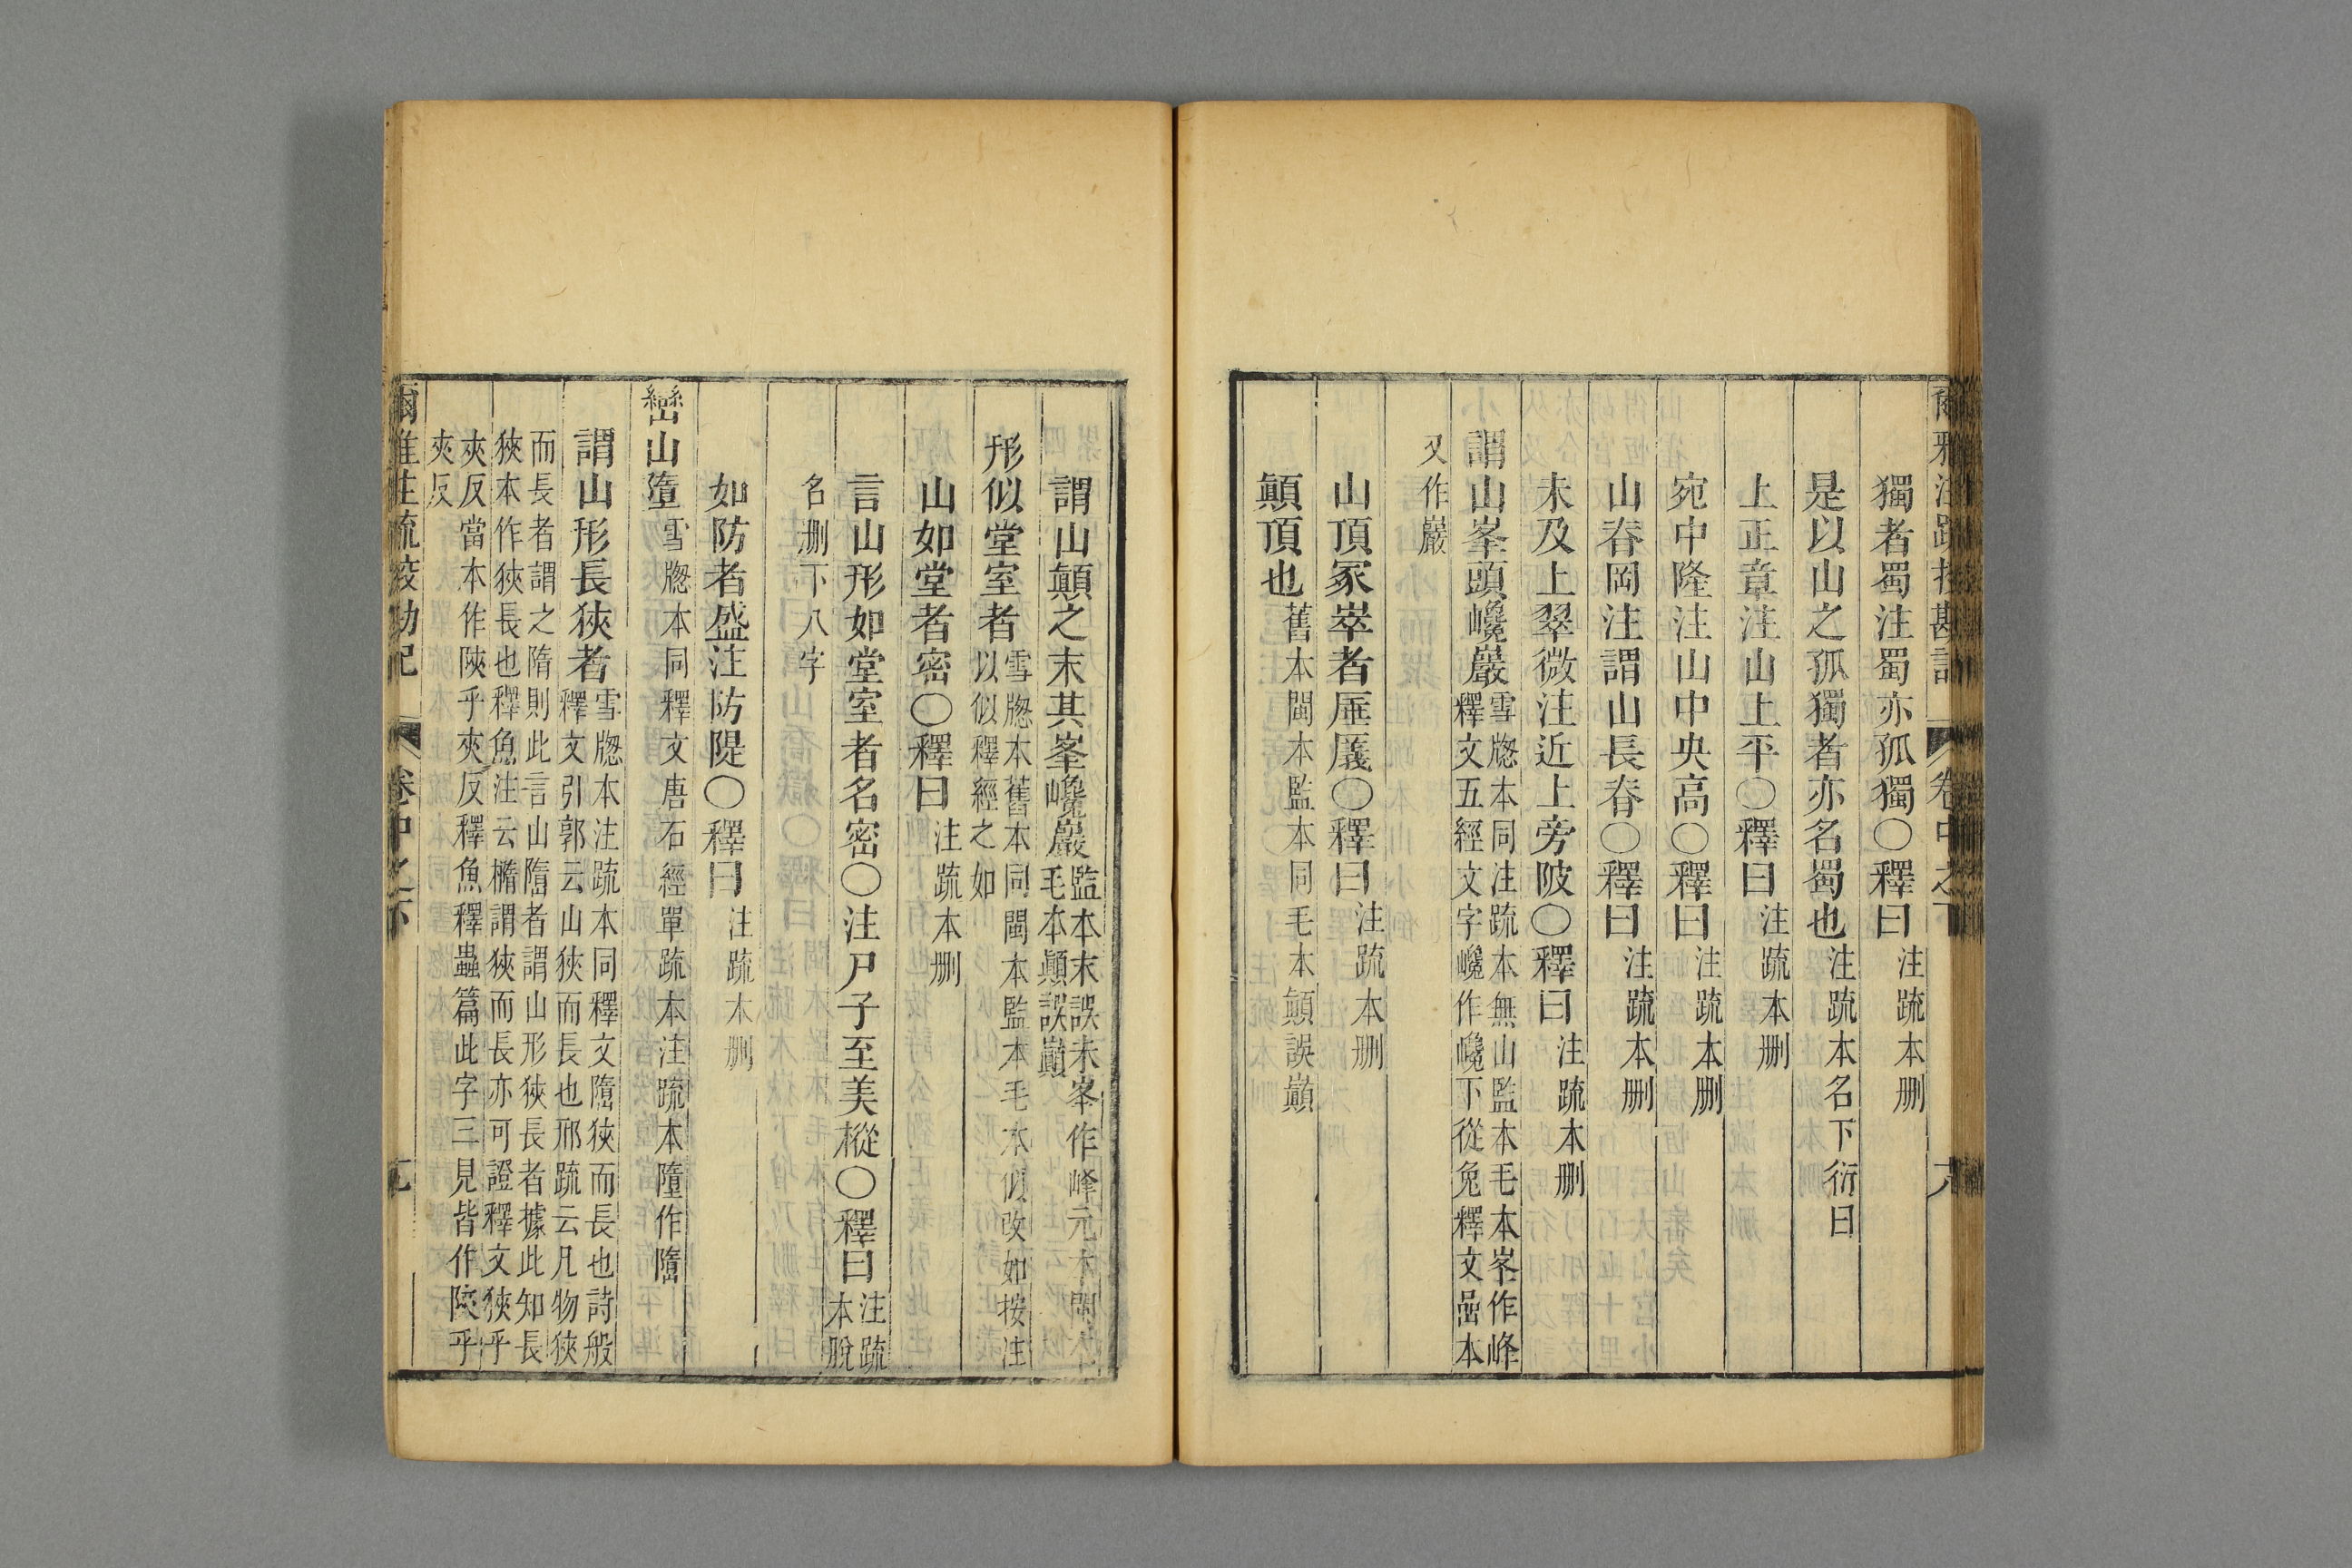 爾雅注疏挍勘記 卷中之下
獨者蜀注蜀亦孤獨〇釋曰注疏本刪
是以山之孤獨者亦名蜀也注疏本名下衍曰
上正章注山上平〇釋曰注疏本刪
宛中隆注山中央高〇釋曰注疏本刪
山脊岡注謂山長脊〇釋曰注疏本刪
未及上翠微注近上旁陂〇釋曰注疏本刪
謂山峯頭巉巖雪牕本同注疏本無山監本毛本峯作峰
釋文五經文字巉作巉下從兔釋文嵒本
又作巖
山頂冢崒者厜㕒〇釋曰注疏本刪
顚頂也舊本閩本監本同毛本顚誤巔
謂山顚之末其峯巉巖監本末誤未峯作峰元本閩本
毛本顚誤巔
形似堂室者雪牕本舊本同閩本監本毛本似改如按注
以似釋經之如
山如堂者密〇釋曰注疏本刪
言山形如堂室者名密〇注尸子至美樅〇釋曰注疏
本脫
名刪下八字
如防者盛注防隄〇釋曰注疏本刪
巒山墮雪牕本同釋文唐石經單疏本注疏本墮作隓
謂山形長狹者雪牕本注疏本同釋文隓狹而長也詩般
釋文引郭云山狹而長也邢疏云凡物狹
而長者謂之隋則此言山隓者謂山形狹長者據此知長
狹本作狹長也釋魚注云橢謂狹而長亦可證釋文狹乎
夾反當本作陝乎夾反釋魚釋蟲篇此字三見皆作陝乎
夾反
爾雅注疏挍勘記 卷中之下